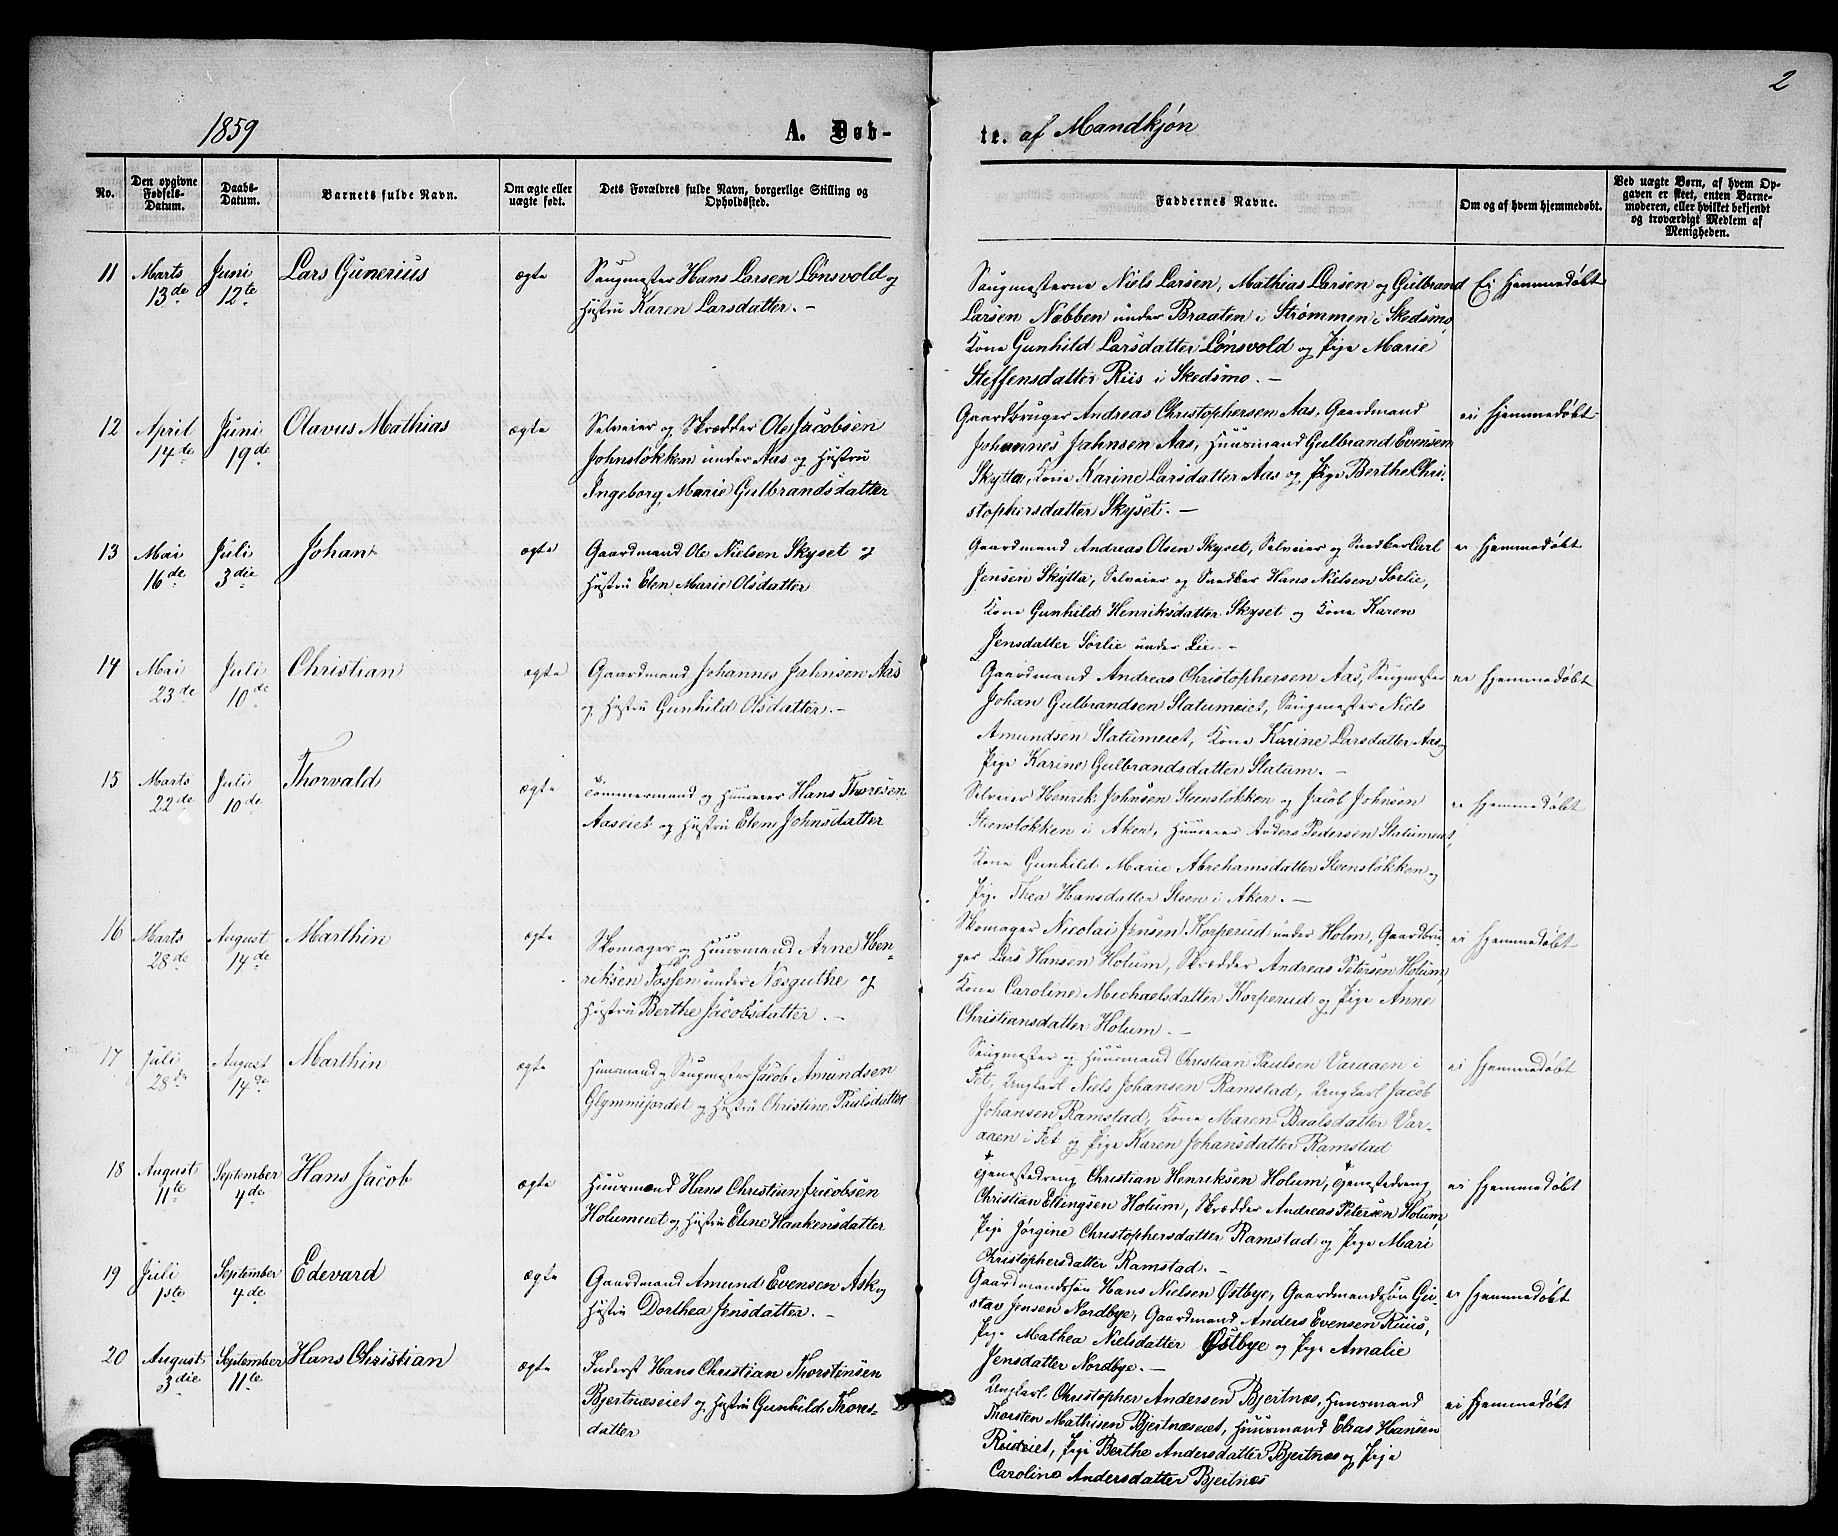 2
1859
A. Døb-
te. af Mandkjøn
No.
Den opgivne
Fødsels-
Datum.
Daabs-
Datum.
Barnets fulde Navn.
Om ægte eller
uægte født.
Dets Forældres fulde Navn, borgerlige Stilling og
Opholdssted.
Faddernes Navne.
Om og af hvem hjemmedøbt.
Ved uægte Børn, af hvem Op-
gaven er skeet, enten Barne-
moderen, eller hvilket bekjendt
og troværdigt Medlem af
Menigheden.
11
Marts
13de
Juni
12te
Lars Gunerius
ægte
Saugmester Hans Larsen Lønsvold og
Hustru Karen Larsdatter. -
Saugmesterne Niels Larsen, Mathias Larsen og Gulbrand
Larsen Nabben under Braaten i Strømmen i Skedsmo
Kone Gunhild Larsdatter Lønsvold og Pige Marie
Steffensdatter Riis i Skedsmo. -
Ei hjemmedøbt
12
April
14de
Juni
19de
Olavus Mathias
ægte
Selveier og Skrædder Ole Jacobsen
Johnsløkken under Aas og Hustru
Ingeborg Marie Gulbrandsdatter
Gaardbruger Andreas Christophersen Aas, Gaardmand
Johannes Jahnsen Aas, Huusmand Gulbrand Evensen
Skytta, Kone Karine Larsdatter Aas og Pige Berthe Chri-
stophersdatter Skyset. -
ei hjemmedøbt
13
Mai
16de
Juli
3die
Johan
ægte
Gaardmand Ole Nielsen Skyset og
Hustru Elen Marie Olsdatter
Gaardmand Andreas Olsen Skyset, Selveier og Snedker Carl
Jensen Skytta, Selveier og Snedker Hans Nielsen Sørlie,
Kone Gunhild Henriksdatter Skyset og Kone Karen
Jensdatter Sørlie under Lie. -
ei hjemmedøbt
14
Mai
23de
Juli
10de
Christian
ægte
Gaardmand Johannes Jahnsen Aas
og Hustru Gunhild Olsdatter. -
Gaardmand Andreas Christophersen Aas, Saugmester
Johan Gulbrandsen Slatumeiet, Saugmester Niels
Amundsen Slatumeiet, Kone Karine Larsdatter Aas og
Pige Karine Gulbrandsdatter Slatum. -
ei hjemmedøbt
15
Marts
22de
Juli
10de
Thorvald
ægte
Tømmermand og Huuseier Hans Thoresen
Aaseiet og Hustru Elen Johnsdatter
Selveier Henrik Johnsen Steensløkken og Jacob Johnsen
Steensløkken i Aker, Huuseier Anders Pedersen Slatumeiet,
Kone Gunhild Marie Abrehamsdatter Steensløkken og
Pige Thea Hansdatter Steen i Aker. -
ei hjemmedøbt
16
Marts
28de
August
14de
Marthin
ægte
Skomager og Huusmand Arne Hen-
riksen Fossen under Næsguthe og
Hustru Berthe Jacobsdatter. -
Skomager Nicolai Jensen Korperud under Holm, Gaardbru-
ger Lars Hansen Holum, Skrædder Andreas Petersen Holum,
Kone Caroline Michaelsdatter Korperud og Pige Anne
Christiansdatter Holum. -
ei hjemmedøbt
17
Juli
28de
August
14de
Marthin
ægte
Huusmand og Saugmester Jacob Amundsen
Glymmijordet og Hustru Christine Paulsdatter
Saugmester og Huusmand Christian Paulsen Varaaen i
Fet, Ungkarl Niels Johansen Ramstad, Ungkarl Jacob
Johansen Ramstad, Kone Maren Baalsdatter Var-
aaen i Fet og Pige Karen Johansdatter Ramstad
ei hjemmedøbt
18
August
11te
September
4de
Hans Jacob
ægte
Huusmand Hans Christian Jacobsen
Holumeiet og Hustru Eline Haakensdatter
Tjenestedreng Christian Henriksen Holum, Tjenestedreng
Christian Ellingsen Holum, Skrædder Andreas Petersen Holum,
Pige Jørgine Christophersdatter Ramstad og Pige Mari
Christophersdatter Ramstad. -
ei hjemmedøbt
19
Juli
1ste
September
4de
Edevard
ægte
Gaardmand Amund Evensen Ask og
Hustru Dorthea Jensdatter. -
Gaardmandssøn Hans Nielsen Østbye, Gaardmandssøn Gu-
stav Jensen Nordbye, Gaardmand Anders Evensen Ruiis,
Pige Mathea Nielsdatter Østbye og Pige Amalie
Jensdatter Nordbye. -
ei hjemmedøbt
20
August
3die
September
11te
Hans Christian
ægte
Inderst Hans Christian Thorstensen
Bjertnæseiet og Hustru Gunhild Thores-
datter
Ungkarl Christopher Andersen Bjertnæs, Huusmand
Thorsten Mathisen Bjertnæseiet, Huusmand Elias Hansen
Ruiseiet, Pige Berthe Andersdatter Bjertnæs og Pige
Caroline Andersdatter Bjertnæs
ei hjemmedøbt